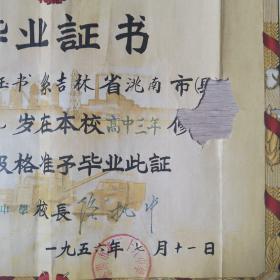 毕业証书
证书 系吉林省洮南市(县
岁在本校高中三年修
及格准予毕业此証
中学校長
一九五六年七月十一日